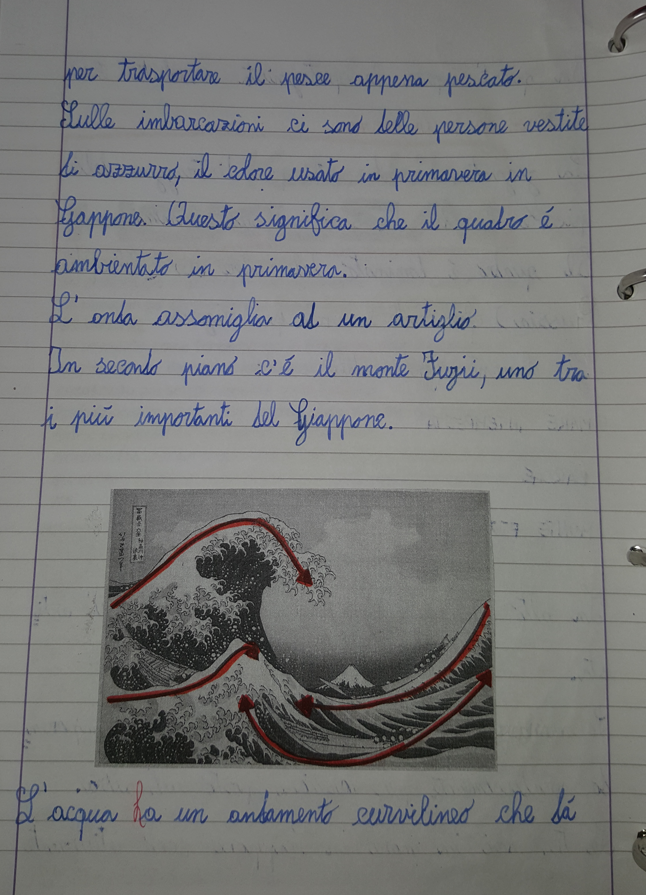 per trasportare il pesce appena pescato.
Sulle imbarcazioni ci sono delle persone vestite
di azzurro, il colore usato in primavera in
Giappone. Questo significa che il quadro é
ambientato in primavera.
L'onda assomiglia ad un artiglio.
In secondo piano c'é il monte Fuji, uno tra
i piú importanti del Giappone.
L'acqua ha un andamento curvilineo che dá